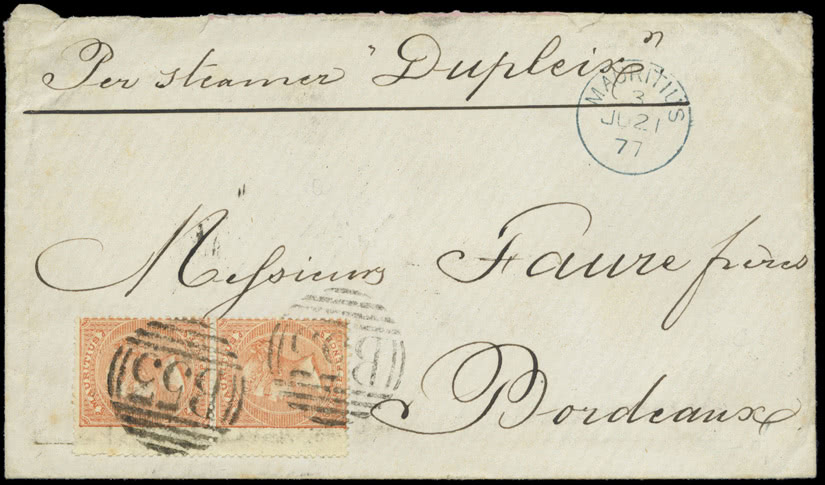 Per steamer "Dupleix"
MAURITIUS
3
JU 21
77
Messieurs Faure frères
Bordeaux
MAURITIUS
B53
B53